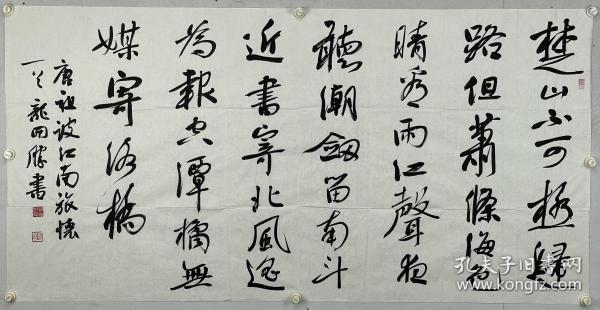 楚山不可極歸
路但蕭條海色
晴看雨江聲夜
聽潮劍留南斗
近書寄北風遙
為報空潭橘無
媒寄洛橋
唐祖詠江南旅懷
書
孔夫子旧书网
www.kongfz.com